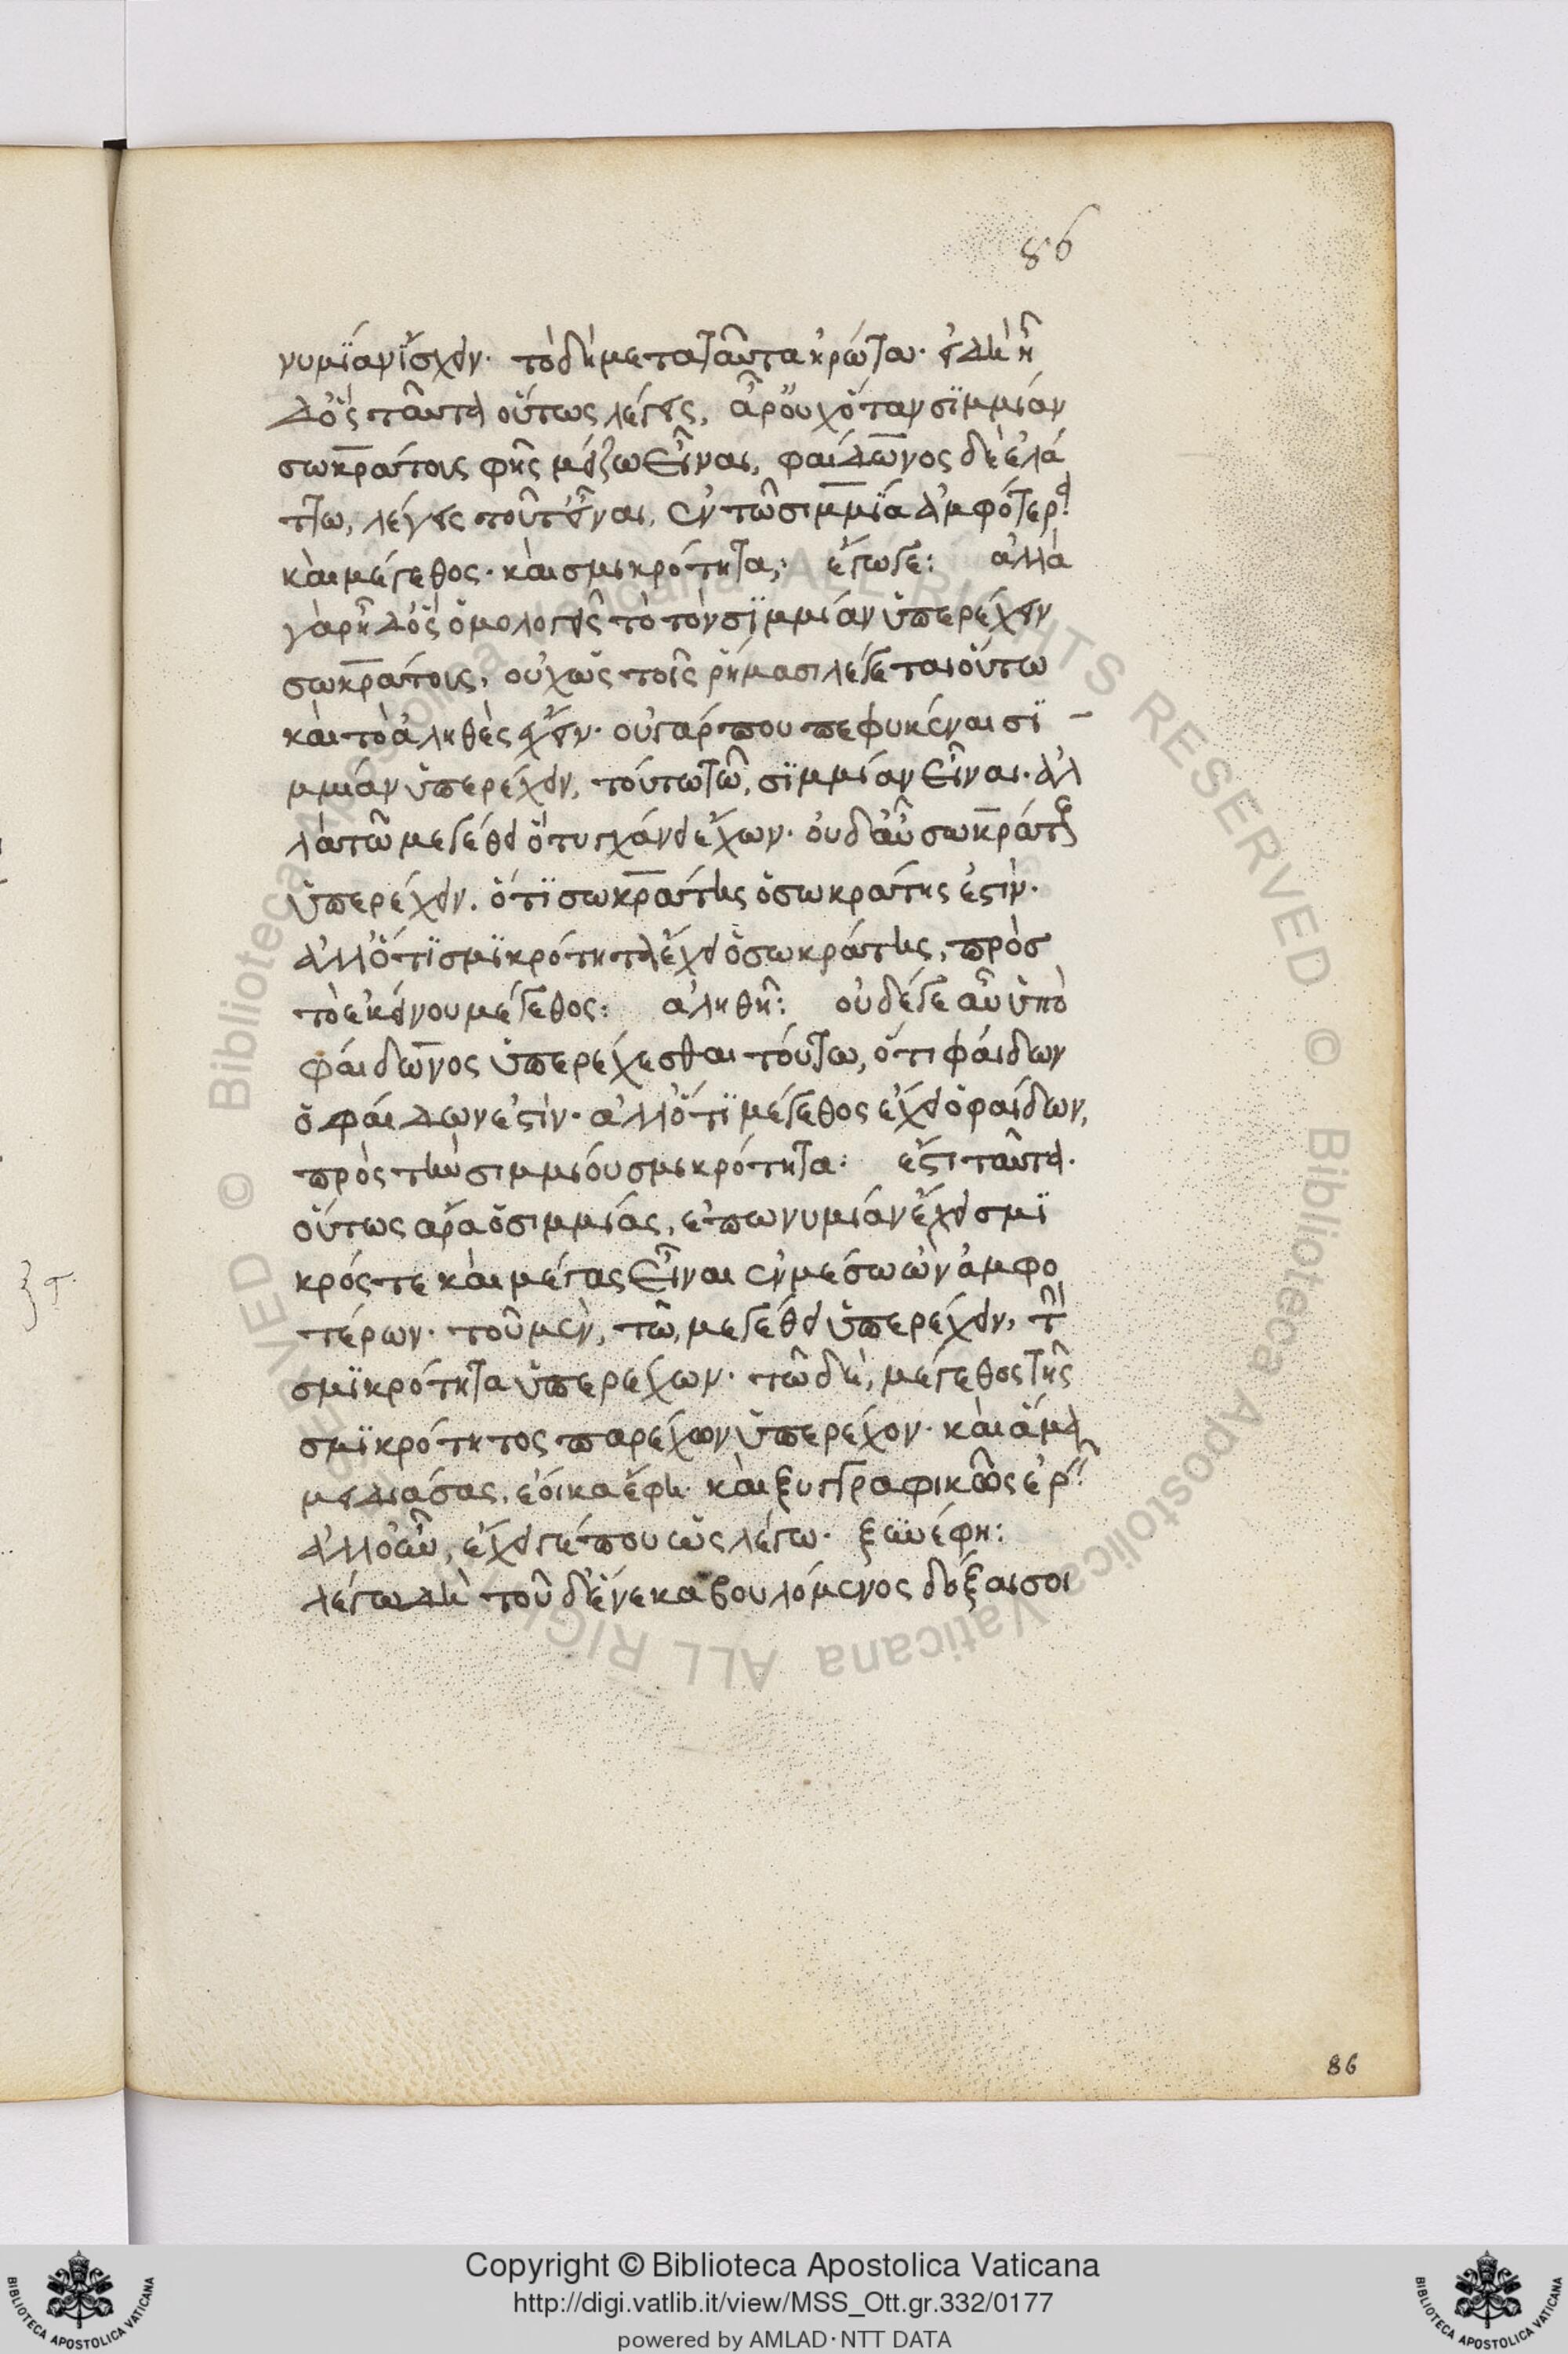 86
νυμίαν ἴσχειν. τὸ δὴ μετὰ ταῦτα ἠρώτα. εἰ δὴ ἦ
δ' ὃς ταῦτα οὕτως λέγεις, ἆρ' οὐχ ὅταν σϊμμίαν
σωκράτους φῇς μείζω εἶναι, φαίδωνος δὲ ἐλά
ττω, λέγεις τοῦτ' εἶναι, ἐν τῶ σιμμΐα ἀμφότερα
καὶ μέγεθος. καὶ σμικρότητα; ἔγωγε: ἀλλὰ
γὰρ ἦ δ' ὃς ὁμολογεῖς τὸ τὸν σϊμμίαν ὑπερέχειν
σωκράτους, οὐχ ὡς τοῖς ῥήμασι λέγεται οὕτω
καὶ τὸ ἀληθὲς ἔχειν. οὐ γάρ που πεφυκέναι σϊ
μμίαν ὑπερέχειν, τούτω τῶ, σϊμμίαν εἶναι. ἀλ
λὰ τῶ μεγέθει ὃ τυγχάνει ἔχων. οὐδ' αὖ σωκράτους
ὑπερέχειν. ὅτϊ σωκράτης ὁ σωκράτης ἐστίν.
ἀλλ' ὅτϊ σμϊκρότητα ἔχει ὁ σωκράτης, πρὸς
τὸ ἐκείνου μέγεθος: ἀληθῆ: οὐδέ γε αὖ ὑπὸ
φαίδωνος ὑπερέχεσθαι τούτω, ὅτι φαίδων
ὁ φαίδων ἐστίν. ἀλλ' ὅτϊ μέγεθος ἔχει ὁ φαίδων,
πρὸς τὴν σιμμίου σμικρότητα: ἔστι ταῦτα.
οὕτως ἄρα ὁ σιμμίας, ἐπωνυμίαν ἔχει σμϊ
κρός τε καὶ μέγας εἶναι ἐν μέσω ὢν ἀμφο
τέρων. τοῦ μὲν, τῶ, μεγέθει ὑπερέχειν, τὴν
σμϊκρότητα ὑπερέχων. τῶ δὲ, μέγεθος τῆς
σμϊκρότητος παρέχων ὑπερέχον. καὶ ἅμα
μειδιάσας, ἔοικα ἔφη. καὶ ξυγγραφικῶς ἐρεῖν
ἀλλ' οὖν, ἔχει γέ που ὡς λέγω. ξυνέφη:
λέγω δὴ τοῦδ' ἕνεκα βουλόμενος δόξαι σοι
86
Copyright © Biblioteca Apostolica Vaticana
http://digi.vatlib.it/view/MSS_Ott.gr.332/0177
powered by AMLAD·NTT DATA